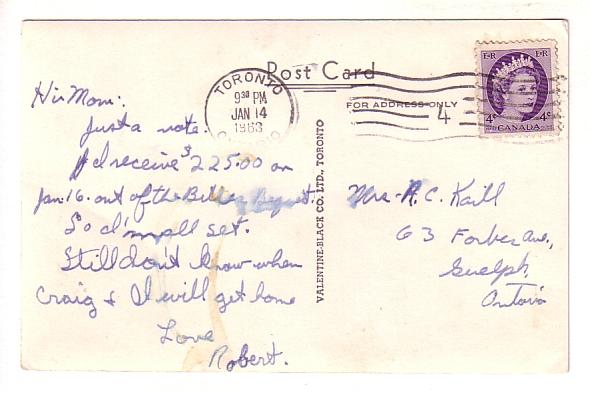 Post Card
TORONTO
9 30 PM
JAN 14
1963
ONTARIO
FOR ADDRESS ONLY
4
E R E R
4c 4c
CANADA
VALENTINE-BLACK CO. LTD., TORONTO
Hi Mom:
Just a note.
I'd receive $225.00 on
Jan. 16. out of the
So I'm all set.
Still don't know when
Craig & I will get home
Love
Robert.
Mrs. R. C. Kaill
63 Forbes Ave.,
Guelph,
Ontario